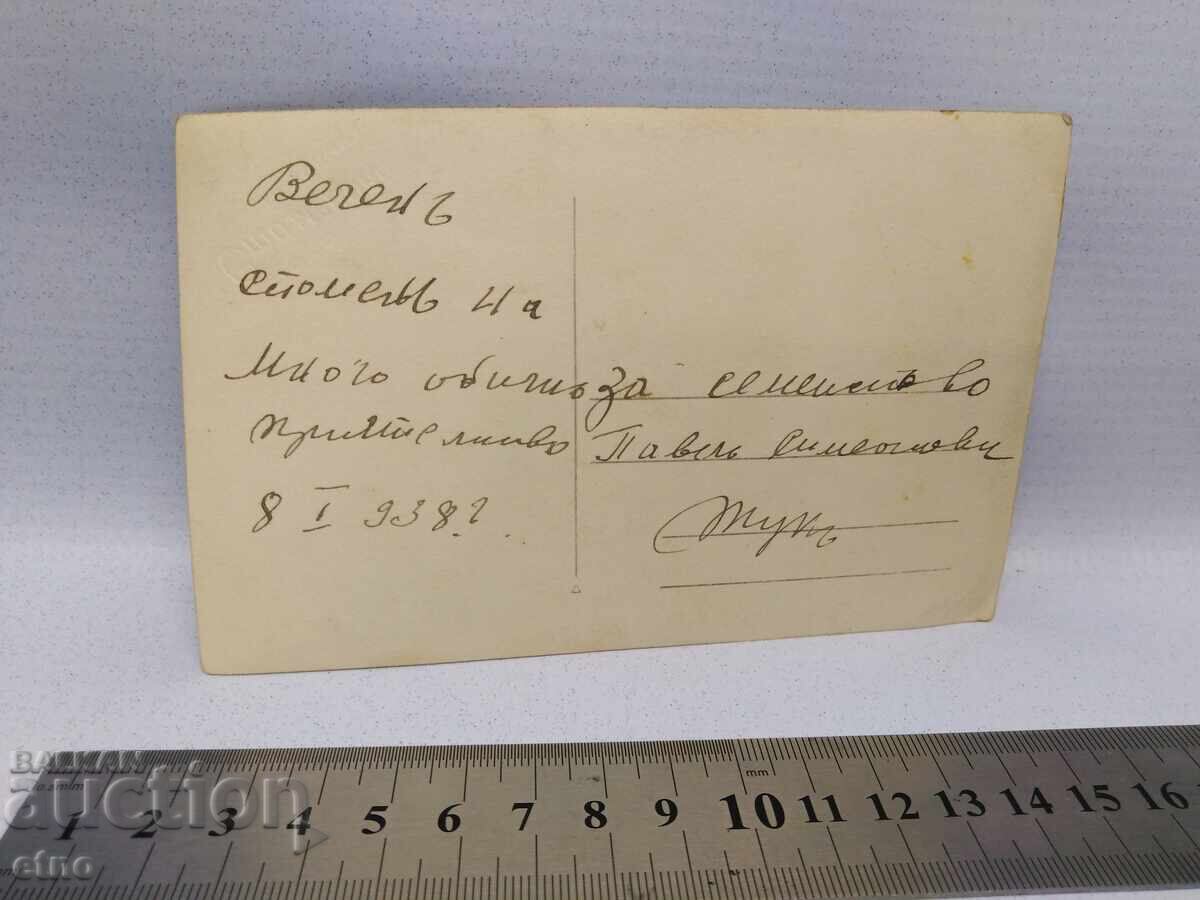 Веченъ
споменъ на
много обични
приятелство
8 I 938 г.
за семейство
Павелъ Симеонови
Тукъ
BALKAN
auction
etno
mm
1 2 3 4 5 6 7 8 9 10 11 12 13 14 15 16